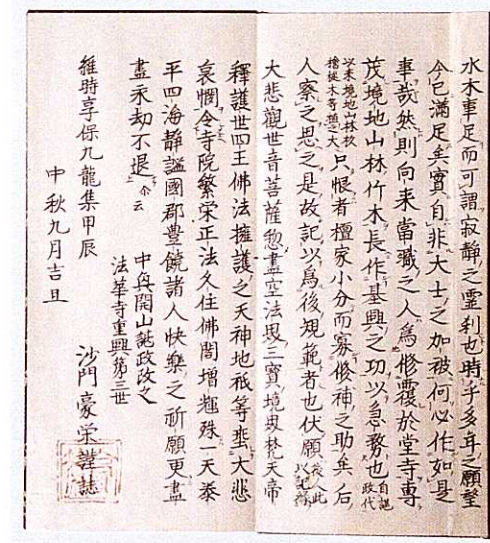 水木事足而可謂寂静之霊刹也時乎多年之願望
今已滿足矣實自非大士之加被何必作如是
事哉然則向来當職之人為修覆於堂寺專
茂境地山林竹木長作基興之功以急務也自誌政代
以来境地山林杦檜樅木等類之大只恨者檀家小分而寡修神之助矣后
人察之思之是故記以為後規範者也伏願
大悲觀世音菩薩惣盡空法界三寶境界梵天帝
釋護世四王佛法擁護之天神地祇等垂大悲
哀愍令寺院繁栄正法久住佛閣増輝殊一天泰
平四海静謐國郡豊饒諸人快樂之祈願更盡
盡未劫不退
中興開山誌政改之
法華寺重興第三世
維時享保九龍集甲辰 沙門豪栄謹誌
中秋九月吉旦